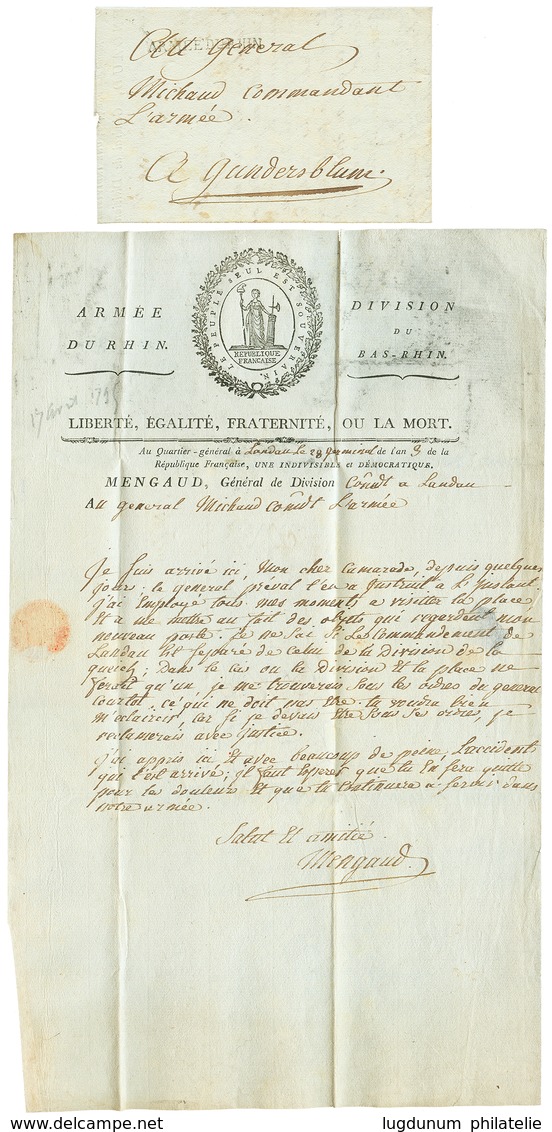 Au General
Michaud Commandant
L'armée.
A gundersblum.
ARMÉE
DU RHIN.
LE PEUPLE SEUL EST SOUVERAIN
RÉPUBLIQUE
FRANÇAISE
DIVISION
DU
BAS-RHIN.
17 avril 1795
LIBERTÉ, ÉGALITÉ, FRATERNITÉ, OU LA MORT.
Au Quartier-général à Landau le 28 germinal de l'an 3 de la
République Française, UNE INDIVISIBLE et DÉMOCRATIQUE.
MENGAUD, Général de Division Comdt a Landau
Au general Michaud Comdt L'armée
Je suis arrivé ici, Mon cher Camarade, depuis quelques
jours. le general préval t'en a Instruit a L'Instant.
J'ai Employé tous mes moments a visiter la place
Et a me mettre au fait des objets qui regardent mon
nouveau poste. Je ne sai si Le Commandement de
Landau Est séparé de Celui de la Division de la
queich; Dans le cas ou la division Et la place ne
feroit qu'un, je me trouverois sous les ordres du general
Courtot, ce qui ne doit pas Etre. tu voudra bien
M'eclaircir, car si je devais Etre sous ses ordres, je
reclamerais avec justice.
J'ai appris ici Et avec beaucoup de peine, L'accident
qui t'est arrivé; Il faut Esperer que tu En sera quitte
pour les douleurs Et que tu Continuera a servir dans
notre armée.
Salut Et amitié.
Mengaud
www.delcampe.net
lugdunum philatelie